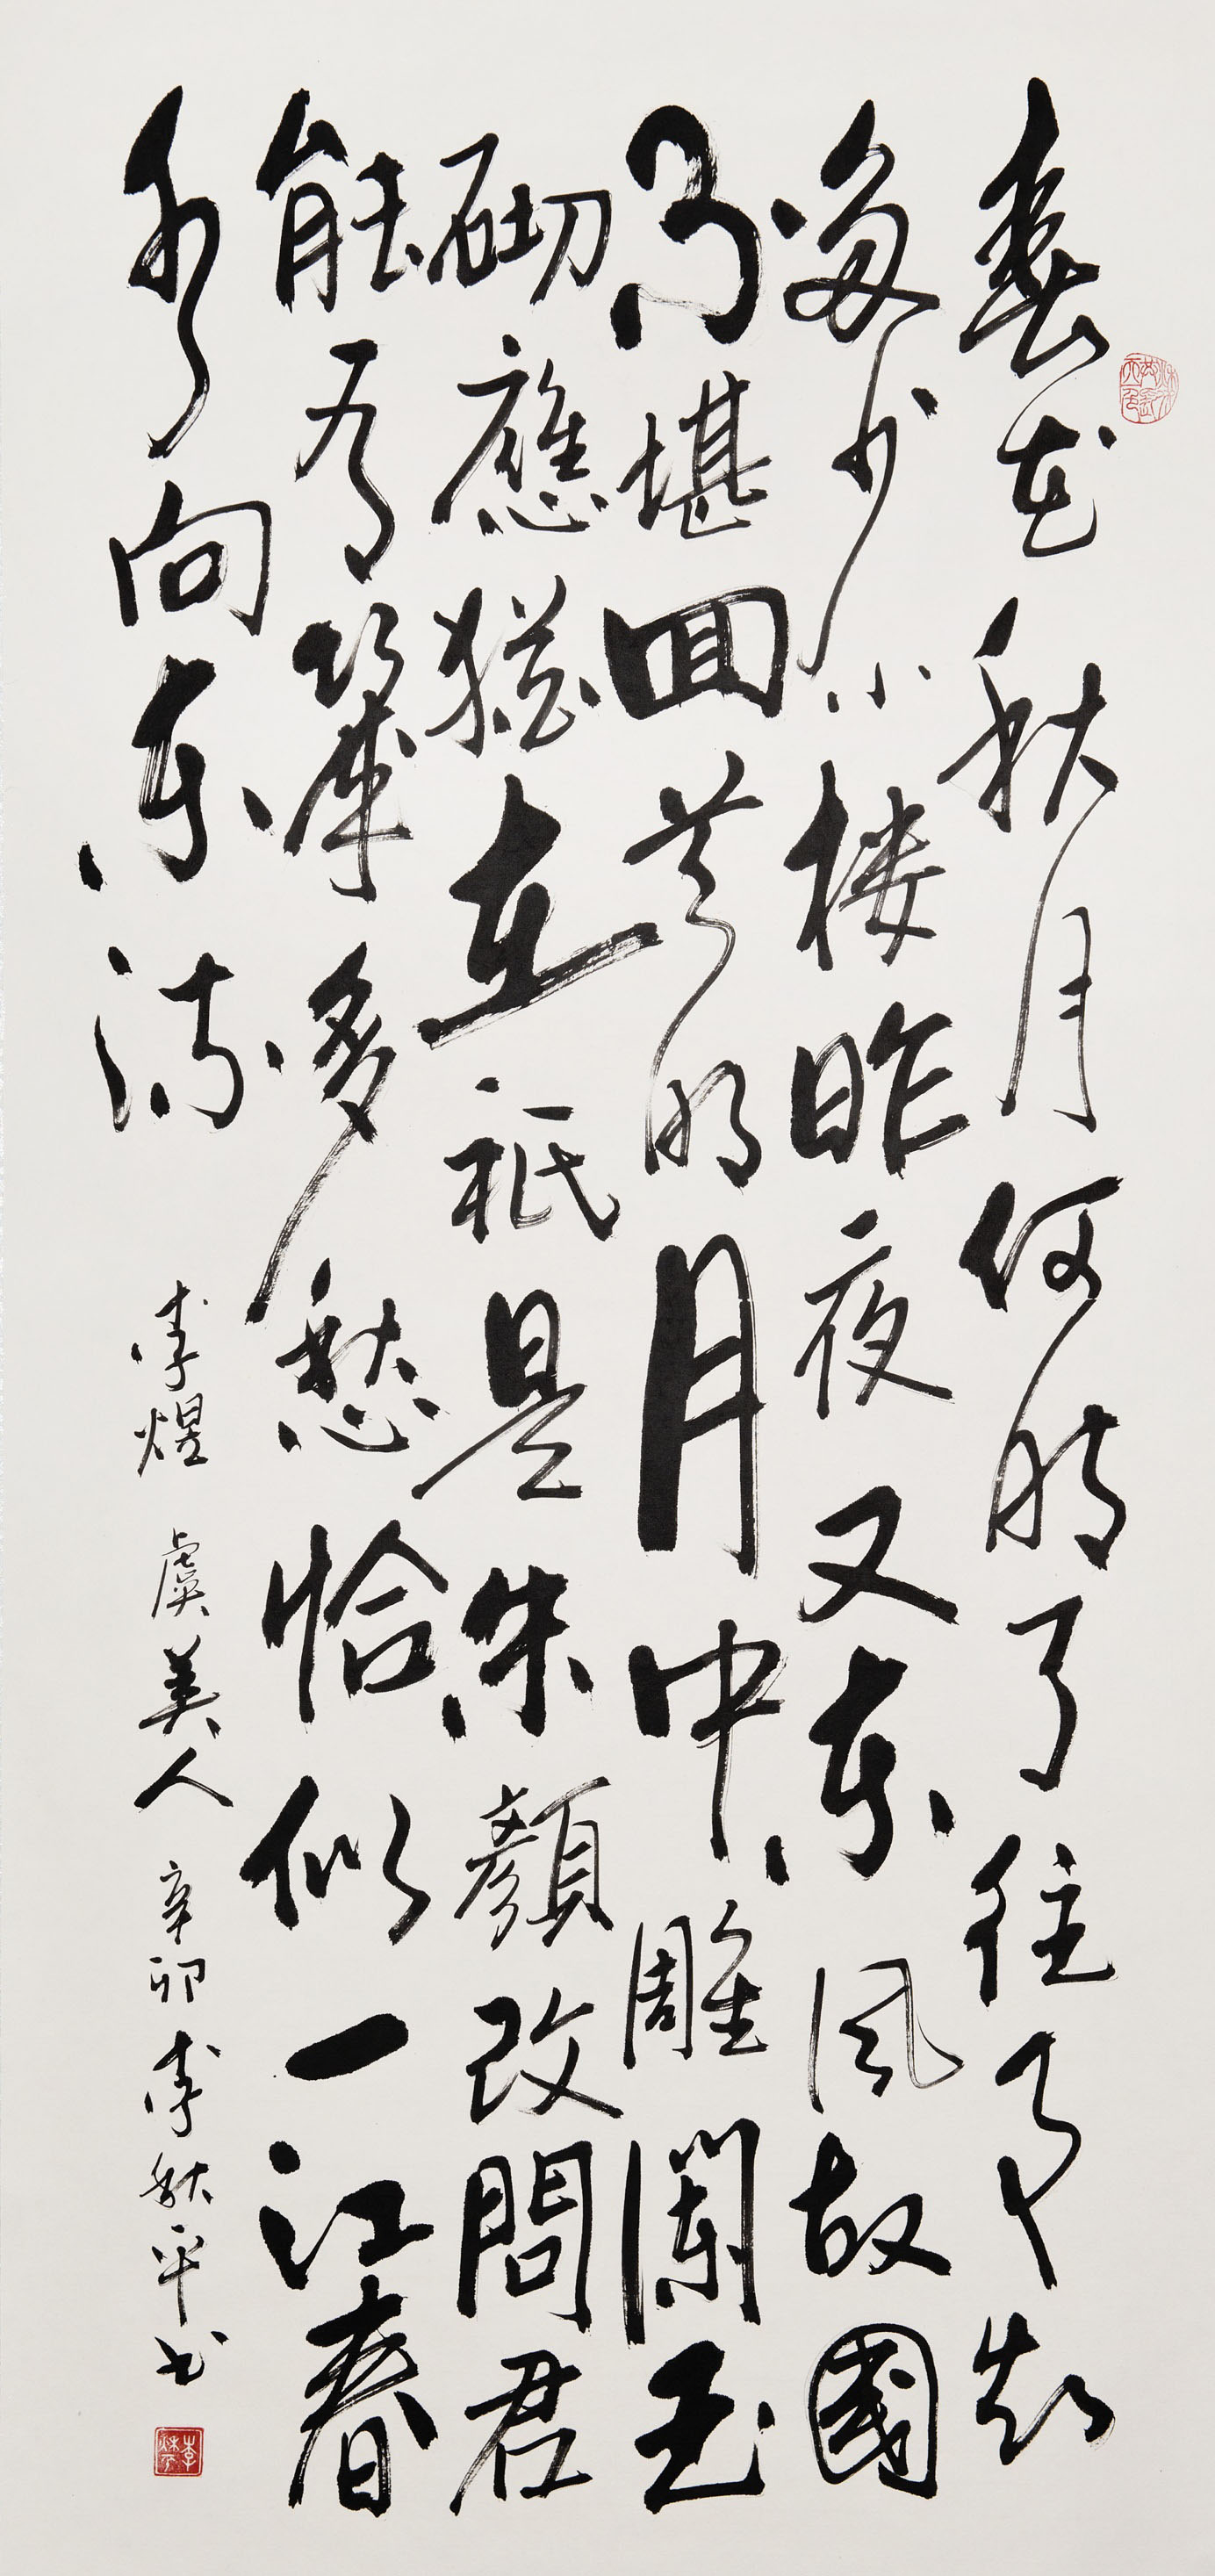 春花秋月何時了往事知
多少小楼昨夜又東風故國
不堪囬首明月中雕闌玉
砌應猶在祇是朱顏改問君
能有幾多愁恰似一江春
水向東流 李煜 虞美人 辛卯 李秋平书